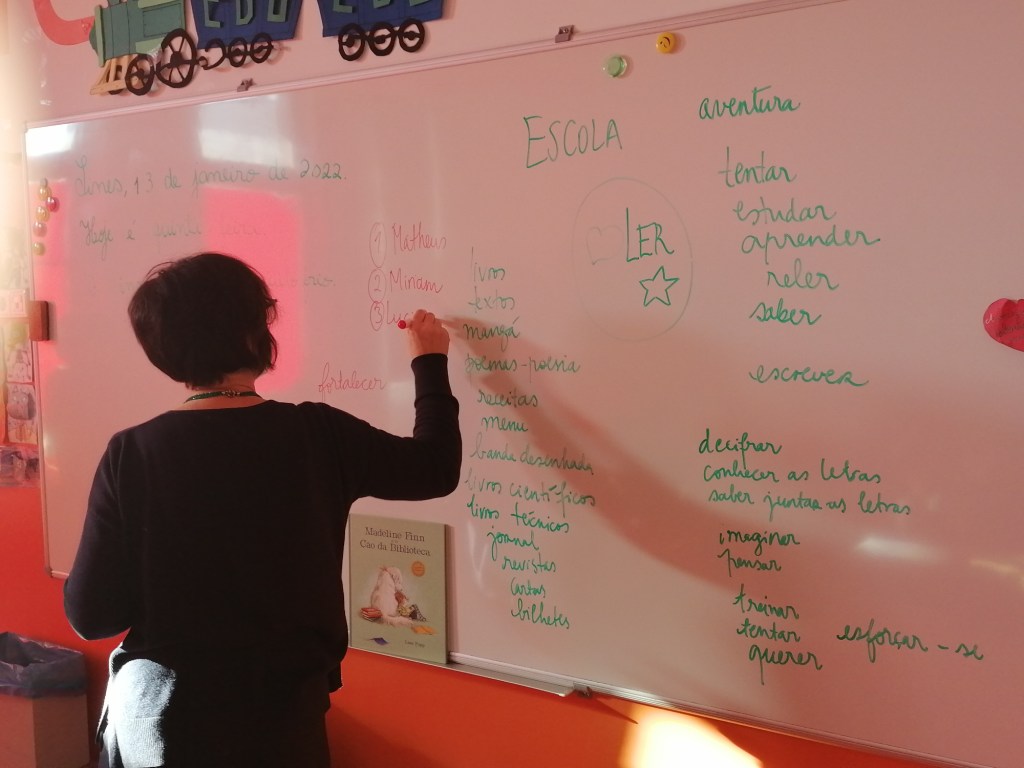 ESCOLA
aventura
Lunes, 13 de janeiro de 2022.
Hoje é
LER
tentar
estudar
aprender
reler
saber
escrever
1 Matheus
2 Miriam
3 Luc
fortalecer
livros
textos
mangá
poemas - poesia
receitas
menu
banda desenhada
livros científicos
livros técnicos
jornal
revistas
cartas
bilhetes
decifrar
conhecer as letras
saber juntar as letras
imaginar
pensar
treinar
tentar esforçar-se
querer
Madeline Finn
Cão da Biblioteca